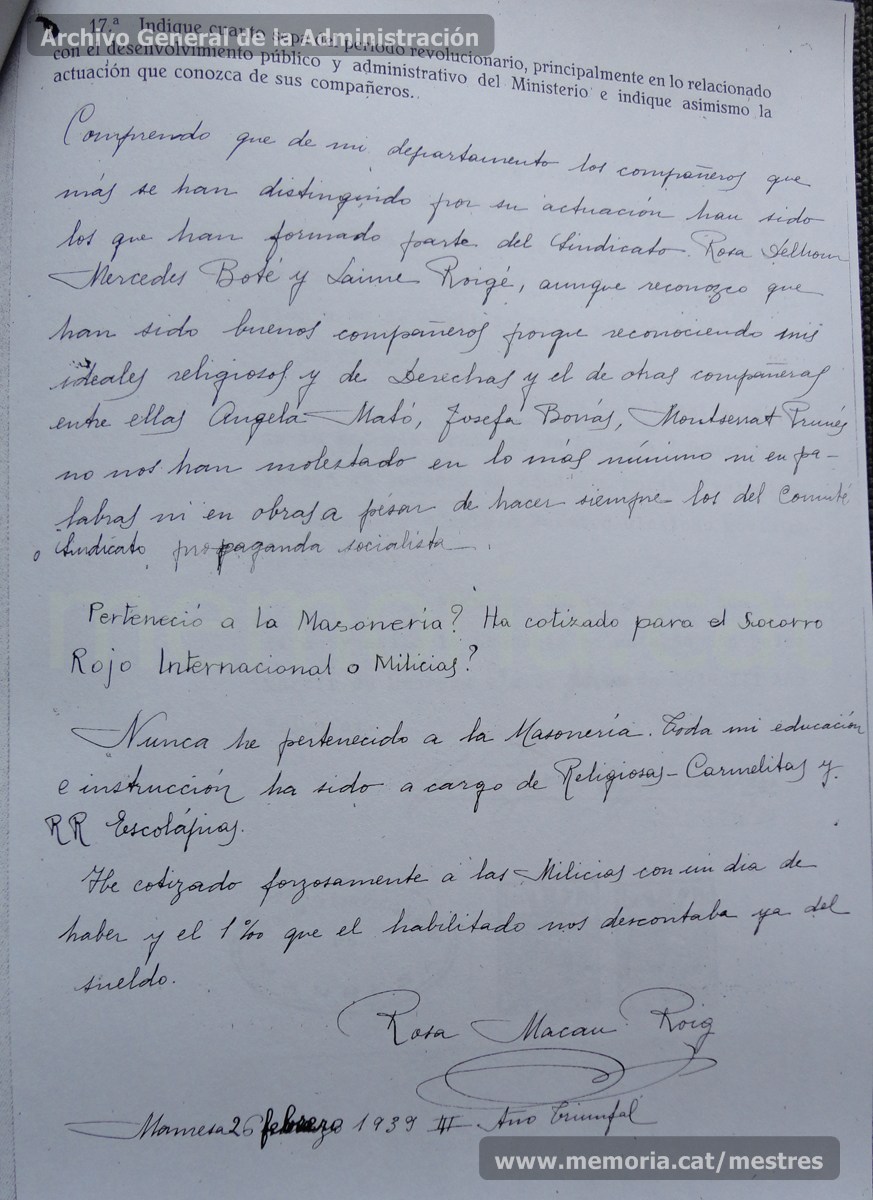 Archivo General de la Administración
17.ª Indique cuanto sepa del período revolucionario, principalmente en lo relacionado
con el desenvolvimiento público y administrativo del Ministerio e indique asimismo la
actuación que conozca de sus compañeros.
Comprendo que de mi departamento los compañeros que
más se han distinguido por su actuación han sido
los que han formado parte del Sindicato. Rosa
Mercedes Boté y Jaime Roigé, aunque reconozco que
han sido buenos compañeros porque reconociendo mis
ideales religiosos y de Derechas y el de otras compañeras
entre ellas Angela Mató, Josefa Borrás, Montserrat Prunés
no nos han molestado en lo más mínimo ni en pa-
labras ni en obras a pesar de hacer siempre los del Comité
o Sindicato propaganda socialista.
Perteneció a la Masonería? Ha cotizado para el Socorro
Rojo Internacional o Milicias?
Nunca he pertenecido a la Masonería. Toda mi educación
e instrucción ha sido a cargo de Religiosas-Carmelitas y
RR Escolápias.
He cotizado forzosamente a las Milicias con un dia de
haber y el 1‰ que el habilitado nos descontaba ya del
sueldo.
Rosa Macau Roig
Manresa 26 febrero 1939 III Año Triunfal
www.memoria.cat/mestres